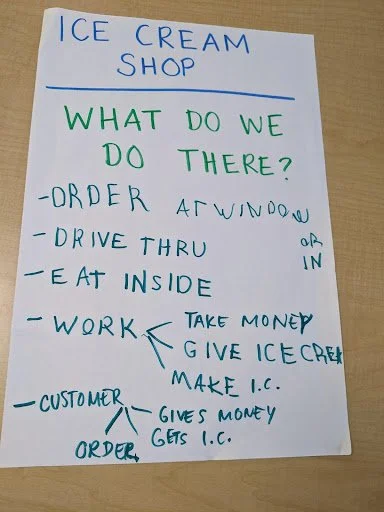 ICE CREAM
SHOP
WHAT DO WE
DO THERE?
-ORDER AT WINDOW
OR
IN
- DRIVE THRU
- EAT INSIDE
- WORK
TAKE MONEY
GIVE ICE CREA
MAKE I.C.
- CUSTOMER
GIVES MONEY
GETS I.C.
ORDER